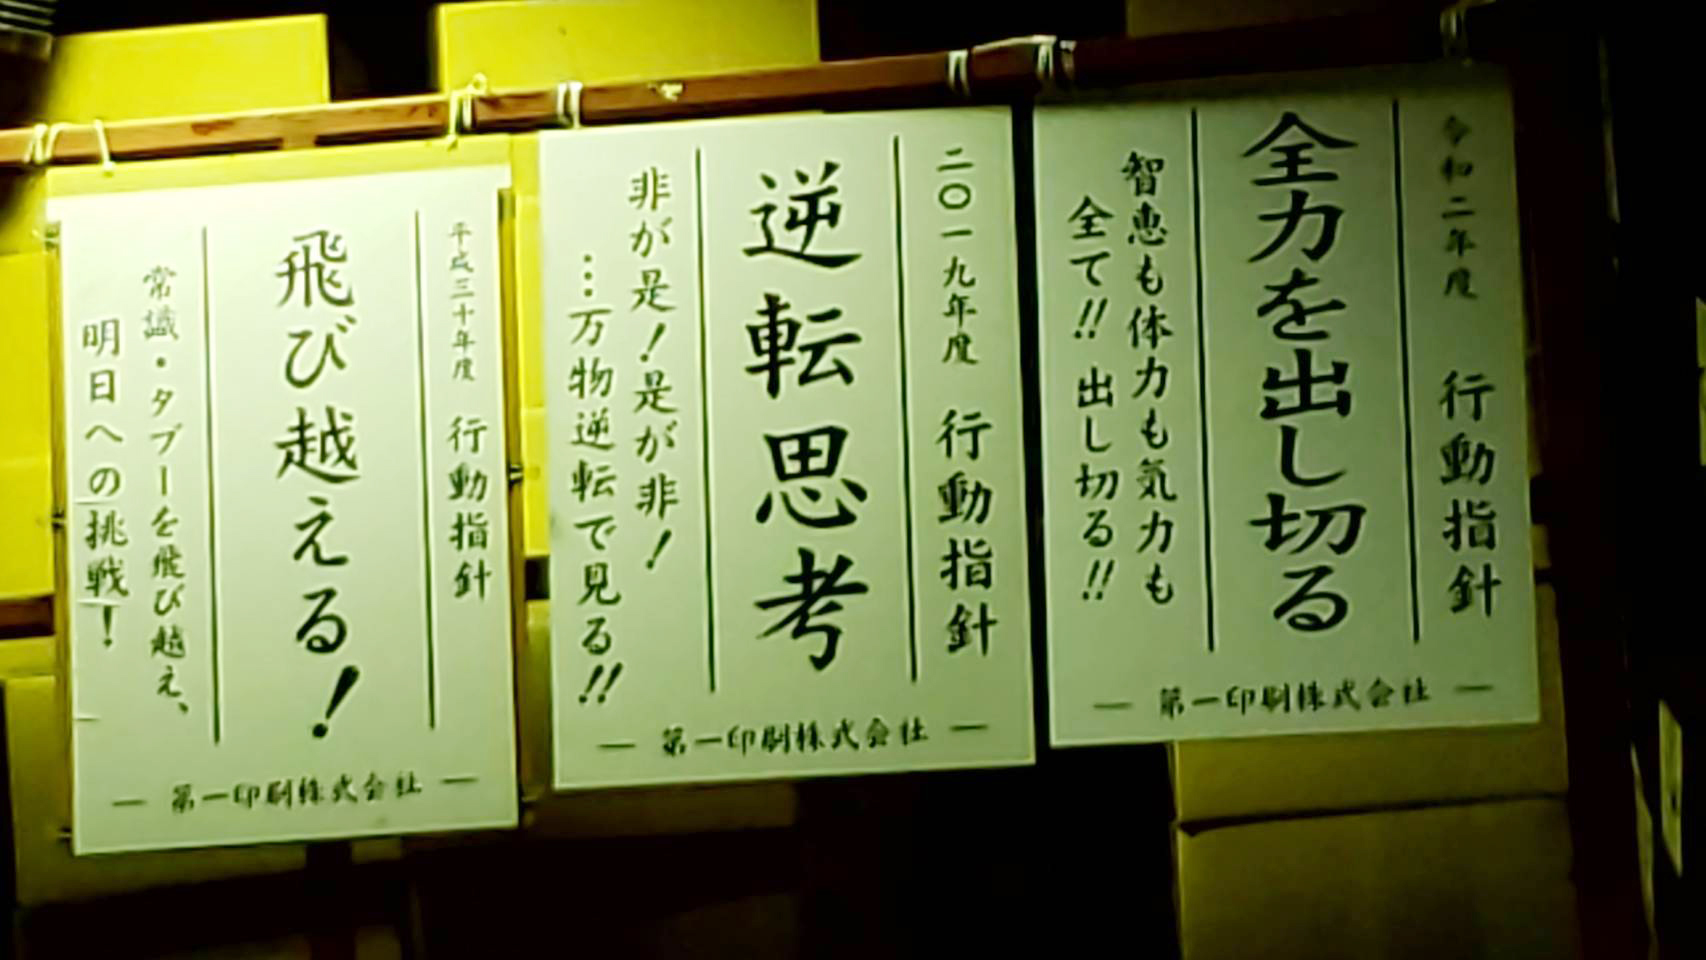 令和二年度 行動指針
全力を出し切る
智恵も体力も気力も
全て!! 出し切る!!
— 第一印刷株式会社 —
二〇一九年度 行動指針
逆転思考
非が是!是が非!
…万物逆転で見る!!
— 第一印刷株式会社 —
平成三十年度 行動指針
飛び越える!
常識・タブーを飛び越え、
明日への挑戦!
— 第一印刷株式会社 —